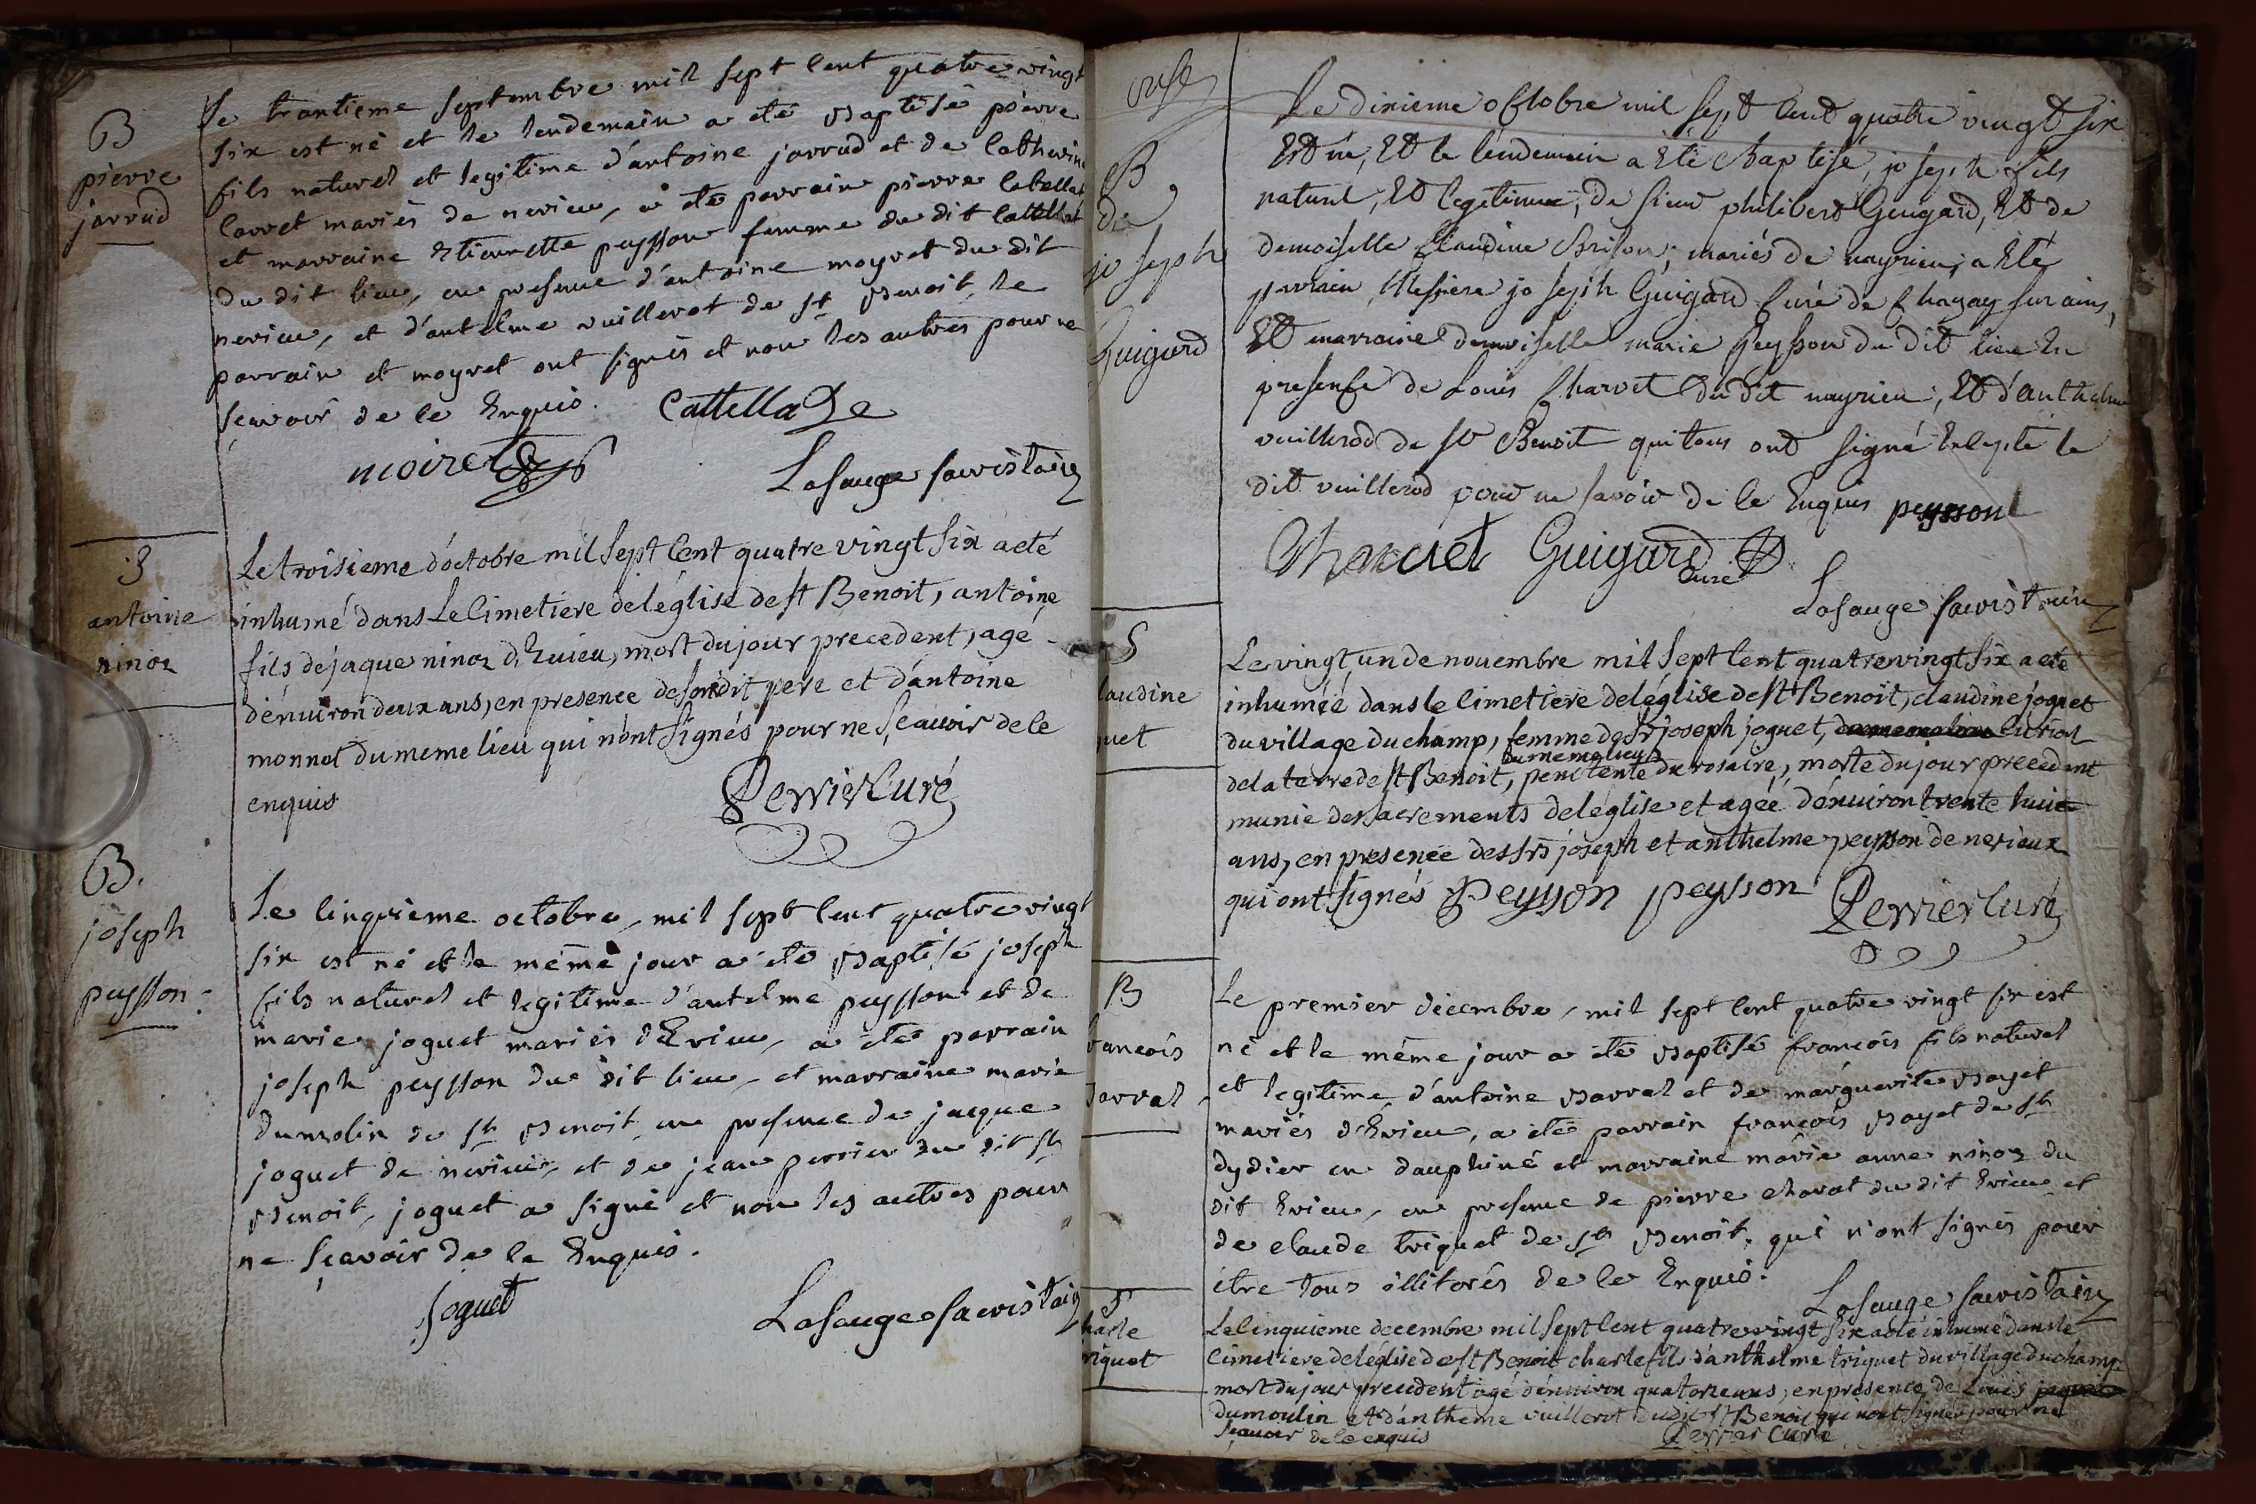 B
pierre
jarrud
Le trantieme septembre mil sept cent quatre vingt
six est né et le lendemain a été baptisé pierre
fils naturel et legitime d'antoine jarrud et de Catherine
Carret mariés de nerieu, a été parrain pierre Catellad
et marraine Etiennette peysson femme du dit Cattellad
du dit lieu, en presence d'antoine moyret du dit
nerieu, et d'antelme vuillerot de st Benoit, le
parrain et moyret ont signés et non les autres pour ne
sçavoir de ce Enquis. Cattellade
moiret
Lasauge sacristain
S
antoine
ninoz
Le troisieme d'octobre mil sept Cent quatre vingt six a eté
inhumé dans Le Cimetiere de l'église de st Benoit, antoine
fils de jaque ninoz d'Evieu, mort du jour precedent, agé
d'enuiron deux ans, en presence de son dit pere et d'antoine
monnot du meme lieu qui n'ont signés pour ne sçauoir de ce
enquis
Perrier Curé
B.
joseph
peysson
Le Cinquieme octobre, mil sept Cent quatre vingt
six est né et le même jour a été Baptisé joseph
fils naturel et legitime d'antelme peysson et de
marie joguet mariés d'Evieu, a été parrain
joseph peysson du dit lieu, et marraine marie
dumolin de st Benoit en presence de jacque
joguet de nerieu, et de jean perrier du dit st
Benoit, joguet a signé et non les autres pour
ne sçavoir de ce Enquis.
Joguet
Lasauge sacristain
B
de
joseph
Guigard
Le dixieme octobre mil sept Cent quatre vingt six
Est né, Et le lendemain a Eté Baptisé, joseph fils
naturel, Et legetimme, de sieur philibert Guigard, Et de
demoiselle Claudine Brison, mariés de nayrieu, a Eté
parrain, Messire joseph Guigard Curé de Chazay sur ains,
Et marraine demoiselle marie Peysson du dit lieu En
presence de Louis Charvet du dit nayrieu, Et d'anthelme
vuillerod de st Benoit qui tous ont signé Excepté le
dit vuillerod pour ne savoir de ce Enquis peysson
Charuet Guigard
Curé
Lasauge sacristain
S
laudine
uet
Le vingt, un de nouembre mil sept Cent quatre vingt six a eté
inhumée dans le Cimetiere de l'église de st Benoit, claudine joguet
du village du champ, femme de Sr joseph joguet, curial
du meme lieu
de la terre de st Benoit, penitente du rosaire, morte du jour precedent
munie des sacrements de l'église et agée d'enuiron trente huit
ans, en presence des srs joseph et anthelme peysson de nerieux
qui ont signés Peysson peysson Perrier Curé
B
rancois
arral
Le premier decembre, mil sept Cent quatre vingt six est
né et le même jour a été Baptisé francois fils naturel
et legitime d'antoine Barral et de marguerite Bayet
mariés d'Evieu, a été parrain francois Bayet de st
dydier en dauphiné et marraine marie anne ninoz du
dit Evieu, en presence de pierre chavot du dit Evieu et
de claude triquet de st Benoit, qui n'ont signés pour
être tous illiterés de ce Enquis.
Lasauge sacristain
S
harle
riquet
Le Cinquieme decembre mil sept Cent quatre vingt six a eté inhumé dans le
Cimetiere de l'église de st Benoit charle fils d'anthelme triquet du village du champ
mort du jour precedent agé d'enuiron quatorze ans, en présence de Louis
dumoulin et d'antheme vuillerot du dit st Benoit qui n'ont signés pour ne
sçauoir de ce enquis Perrier Curé